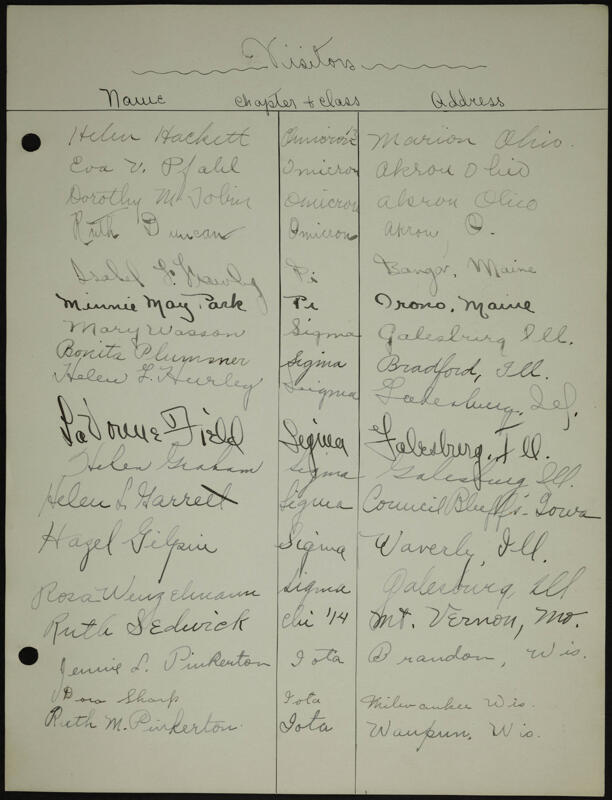 Visitors
Name Chapter & Class Address
Helen Hackett Omicron '13 Marion Ohio.
Eva V. Pfahl Omicron Akron Ohio
Dorothy M. Tobin Omicron Akron Ohio
Ruth Duncan Omicron Akron O.
Isabel Pi Bangor, Maine
Minnie May Park Pi Orono, Maine
Mary Wasson Sigma Galesburg Ill.
Bonita Plummer Sigma Bradford, Ill.
Helen L. Hurley Sigma Galesburg, Ill.
LaVonne Field Sigma Galesburg, Ill.
Helen Graham Sigma Galesburg Ill.
Helen L. Garrett Sigma Council Bluffs - Iowa
Hazel Gilpin Sigma Waverly, Ill.
Rosa Wenzelmann Sigma Galesburg Ill
Ruth Sedwick Chi '14 Mt. Vernon, Mo.
Jennie L. Pinkerton Iota Brandon, Wis.
Dora Sharp Iota Milwaukee Wis.
Ruth M. Pinkerton. Iota Waupun, Wis.